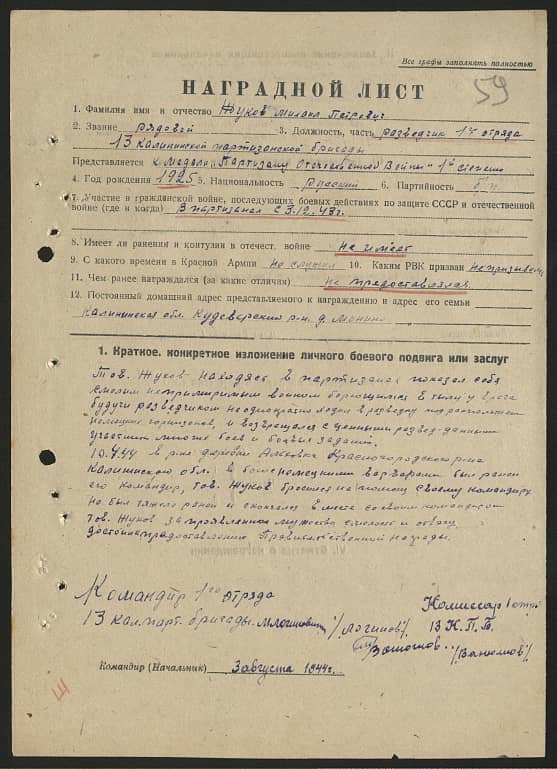 Все графы заполнять полностью
59
НАГРАДНОЙ ЛИСТ
1. Фамилия имя и отчество Жуков Михаил Петрович
2. Звание рядовой 3. Должность, часть разведчик 1го отряда
13 Калининской партизанской бригады
Представляется к медали "Партизану Отечественной Войны" 1й степени
4. Год рождения 1925 5. Национальность русский 6. Партийность б/п
7. Участие в гражданской войне, последующих боевых действиях по защите СССР и отечественной
войне (где и когда) В партизанах с 3.12.43г.
8. Имеет ли ранения и контузии в отечест. войне не имеет
9. С какого времени в Красной Армии не служил 10. Каким РВК призван не призывался
11. Чем ранее награждался (за какие отличия) не предоставлялся
12. Постоянный домашний адрес представляемого к награждению и адрес его семьи
Калининская обл. Кудеверский р-н. д.
1. Краткое, конкретное изложение личного боевого подвига или заслуг
Тов. Жуков находясь в партизанах показал себя
смелым непримиримым воином борющимся в тылу у врага
будучи разведчиком неоднократно ходил в разведку
немецких гарнизонов, и возвращался с ценными развед-данными
участник многих боев и боевых заданий.
10.4.44 в р-не деревни Красногородского р-на
Калининской обл. в бою с немецкими варварами был ранен
его командир, тов. Жуков бросился на помощь своему командиру
но был тяжело ранен и скончался вместе со своим командиром
Тов. Жуков за проявленное мужество смелость и отвагу
достоин предоставлению Правительственной награды.
Командир 1го отряда
13 Кал.парт. бригады. /Логинов/
Комиссар 1 отр.
13 К.П.Б.
/Ванюшов/
Командир (Начальник) 3 августа 1944г.
Ш